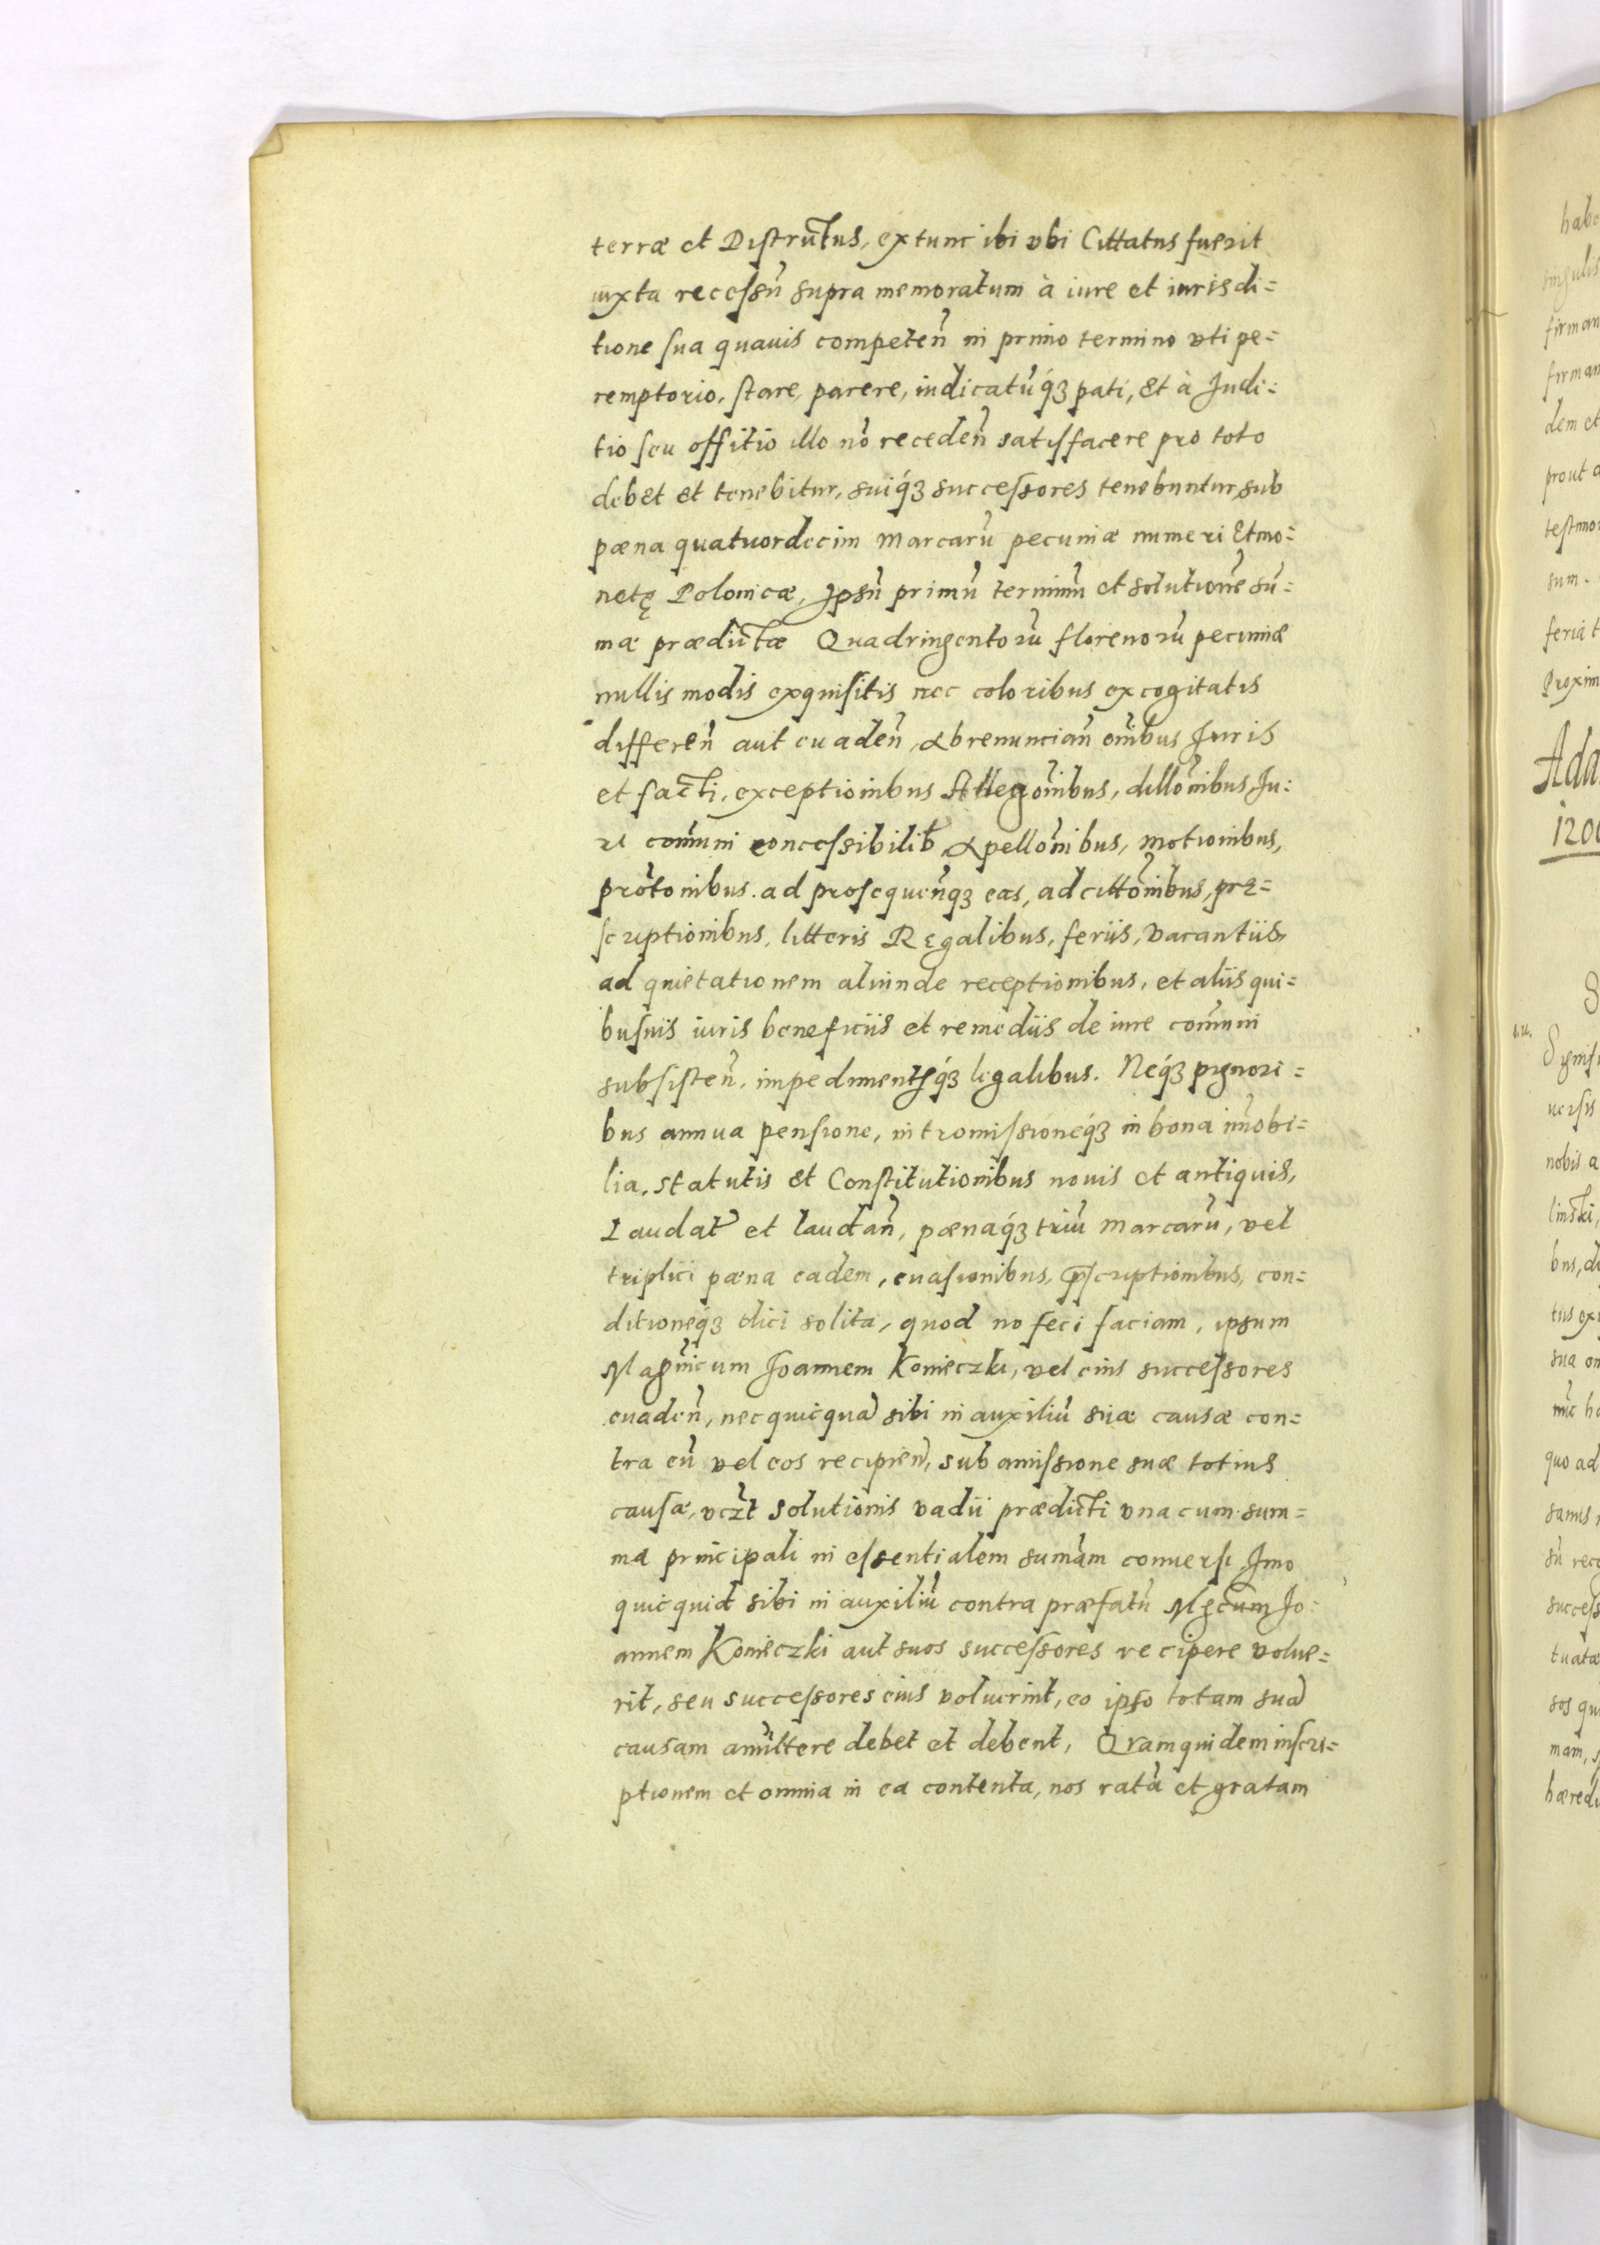 terræ et Districtus, extunc ibi vbi Cittatus fuerit
iuxta recessũ supra memoratum à iure et iurisdi=
tione sua quauis competeñ in primo termino vti pe=
remptorio, stare, parere, iudicatũq́ꝫ pati, et à Judi=
tio seu offitio illo nõ recedeñ satisfacere pro toto
debet et tenebitur, suiq́ꝫ successores tenebuntur, sub
pæna quatuordecim marcarũ pecuniæ numeri et mo=
netę Polonicæ, Ipsũ primũ terminũ et solutionẽ sũ=
mæ prædictæ Quadringentorũ florenorũ pecuniæ
nullis modis exquisitis nec coloribus excogitatis
differeñ aut euadeñ, abrenunciañ om̃ibus Juris
et facti, exceptionibus Allegõnibus, dillõnibus, Ju=
re com̃uni concessibilib, Apellõnibus, motionibus,
prõtonibus. ad prosequeñqꝫ eas, ad cittõnibus, præ=
scriptionibus, litteris Regalibus, feriis, vacantiis,
ad quietationem aliunde receptionibus, et aliis qui=
busuis iuris beneficiis et remediis de iure com̃uni
subsisteñ, impedimentisq́ꝫ legalibus. Neq́ꝫ pignori=
bus annua pensione, intromissioneq́ꝫ in bona im̃obi=
lia, statutis et Constitutionibus nouis et antiquis,
Laudat̃ et laudañ, pænaq́ꝫ triũ marcarũ, vel
triplici pæna eadem, euasionibus, p̃scriptionibus, con=
ditioneq́ꝫ dici solita, quod no feci faciam, ipsum
Magñicum Joannem Konieczki, vel eius successores
euadeñ, nec quicquã sibi in auxiliũ suæ causæ con=
tra eũ vel eos recipieñ, sub amissione suæ totius
causæ, vcz̃t solutionis vadii prædicti vna cum sum=
ma principali in essentialem sum̃am conuersi Imo
quicquid sibi in auxiliũ contra præfatũ Mgcum Jo=
annem Konieczki aut suos successores recipere volue=
rit, seu successores eius voluerint, eo ipso totam suã
causam amittere debet et debent, Qram quidem inscri=
ptionem et omnia in ea contenta, nos ratã et gratam